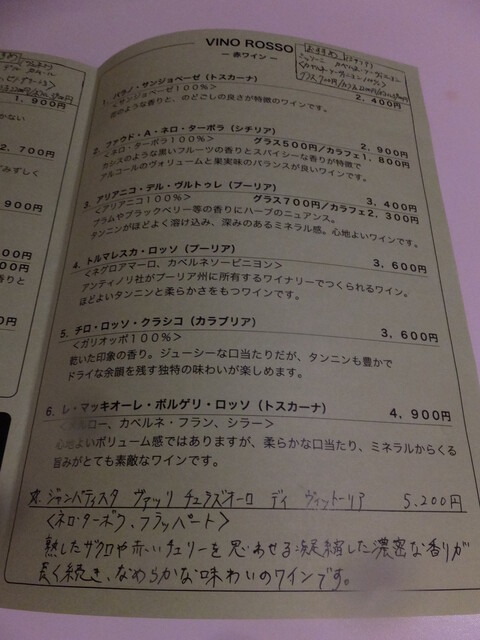 1,900円
2,700円
みずしく
900円
000円
香りと
VINO ROSSO
― 赤ワイン ―
おすすめ
1. パラノ・サンジョベーゼ(トスカーナ)
2,400円
<サンジョベーゼ100%>
香りと、のどごしの良さが特徴のワインです。
2. ファウド・A・ネロ・ターボラ(シチリア)
2,900円
<ネロ・ターボラ100%>
グラス500円/カラフェ1,800円
カシスのような黒いフルーツの香りとスパイシーな香りが特徴で
アルコールのヴォリュームと果実味のバランスが良いワインです。
3. アリアニコ・デル・ヴルトゥレ(プーリア)
3,400円
<アリアニコ100%>
グラス700円/カラフェ2,300円
プラムやブラックベリー等の香りにハーブのニュアンス。
タンニンがほどよく溶け込み、深みのあるミネラル感。心地よいワインです。
4. トルマレスカ・ロッソ(プーリア)
3,600円
<ネグロアマーロ、カベルネソービニヨン>
アンティノリ社がプーリア州に所有するワイナリーでつくられるワイン。
ほどよいタンニンと柔らかさをもつワインです。
5. チロ・ロッソ・クラシコ(カラブリア)
3,600円
<ガリオッポ100%>
乾いた印象の香り。ジューシーな口当たりだが、タンニンも豊かで
ドライな余韻を残す独特の味わいが楽しめます。
6. レ・マッキオーレ・ボルゲリ・ロッソ(トスカーナ)
4,900円
ルロー、カベルネ・フラン、シラー>
心地よいボリューム感ではありますが、柔らかな口当たり、ミネラルからくる
旨みがとても素敵なワインです。
ジャンバティスタ ヴァッリ チェラズオーロ ディ ヴィットーリア 5,200円
<ネロ・ターボラ、フラッパート>
熟したザクロや赤いチェリーを思わせる凝縮した濃密な香りが
長く続き、なめらかな味わいのワインです。